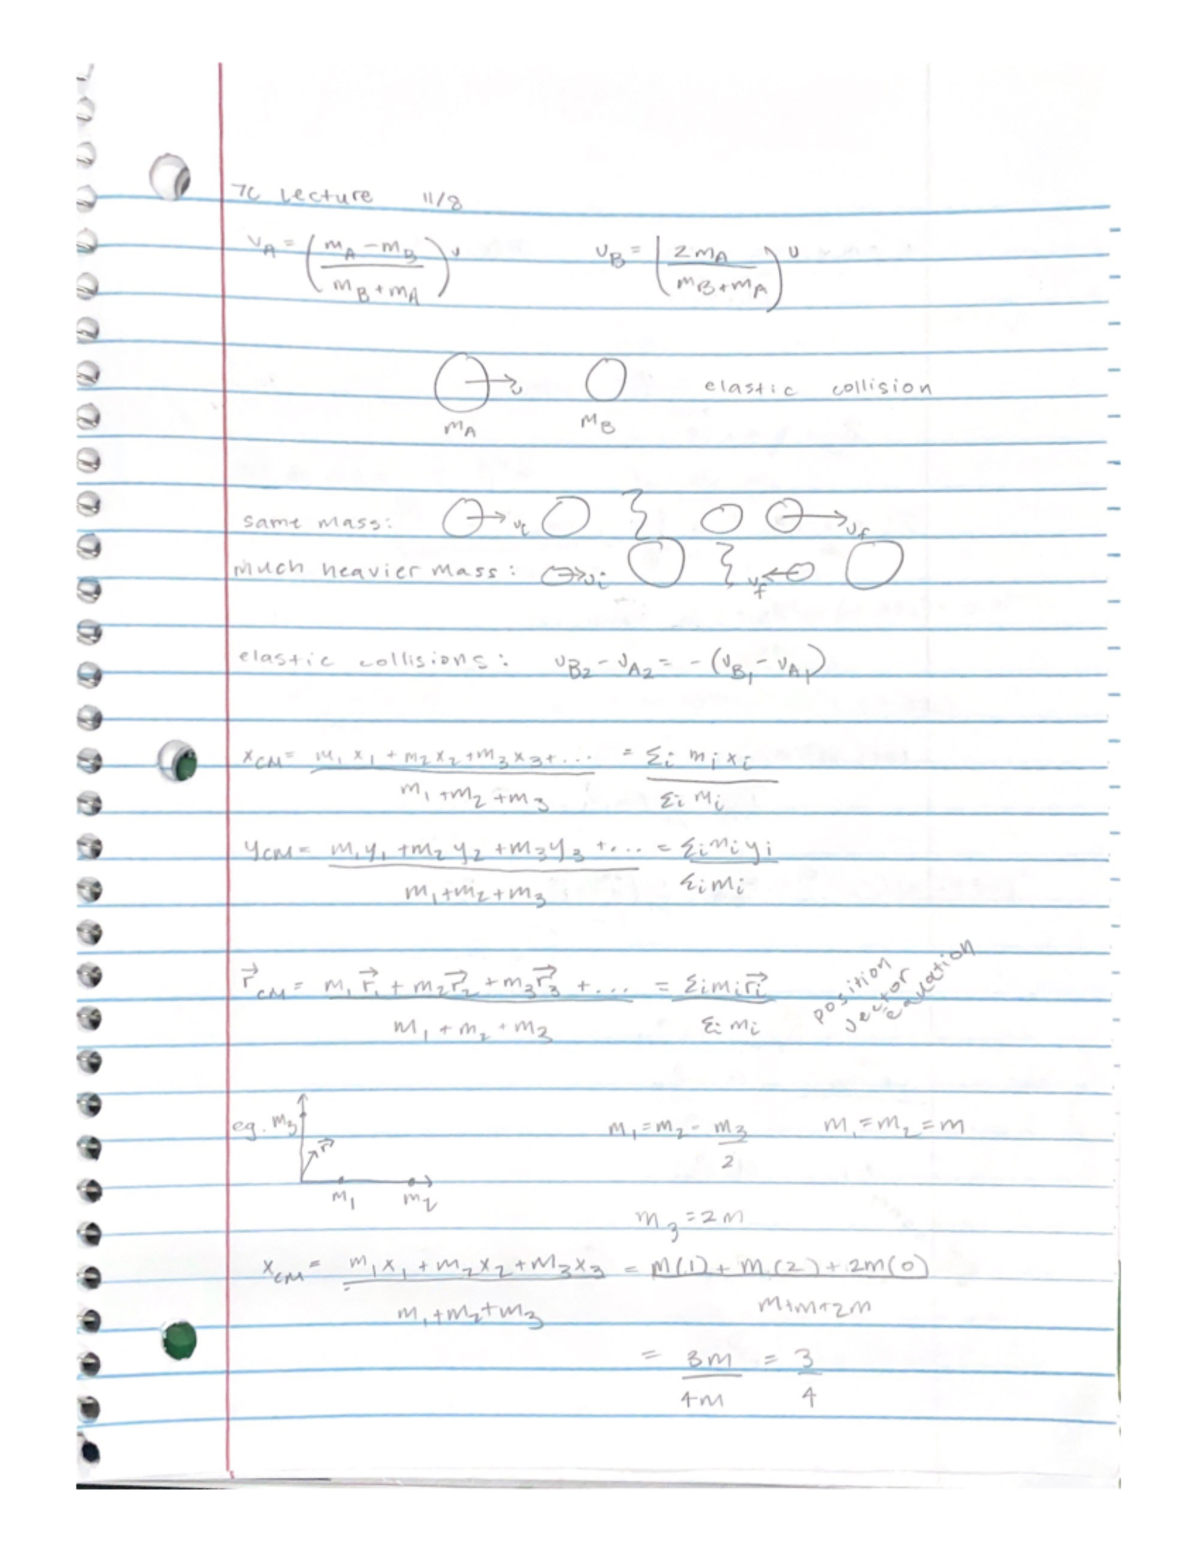 7C Lecture 11/8
v_A = ((m_A - m_B)/(m_B + m_A)) v    v_B = (2m_A/(m_B + m_A)) v
v    elastic collision
m_A    m_B
same mass: v_i } v_f
much heavier mass: v_i } v_f
elastic collisions: v_B2 - v_A2 = -(v_B1 - v_A1)
x_CM = (m_1 x_1 + m_2 x_2 + m_3 x_3 + ...)/(m_1 + m_2 + m_3) = Σ_i m_i x_i / Σ_i m_i
y_CM = (m_1 y_1 + m_2 y_2 + m_3 y_3 + ...)/(m_1 + m_2 + m_3) = Σ_i m_i y_i / Σ_i m_i
r⃗_CM = (m_1 r⃗_1 + m_2 r⃗_2 + m_3 r⃗_3 + ...)/(m_1 + m_2 + m_3) = Σ_i m_i r⃗_i / Σ_i m_i    position vector equation
eg. m_3    r⃗    m_1 = m_2 = m_3/2    m_1 = m_2 = m
m_1    m_2
m_3 = 2m
x_CM = (m_1 x_1 + m_2 x_2 + m_3 x_3)/(m_1 + m_2 + m_3) = (m(1) + m(2) + 2m(0))/(m+m+2m)
= 3m/4m = 3/4